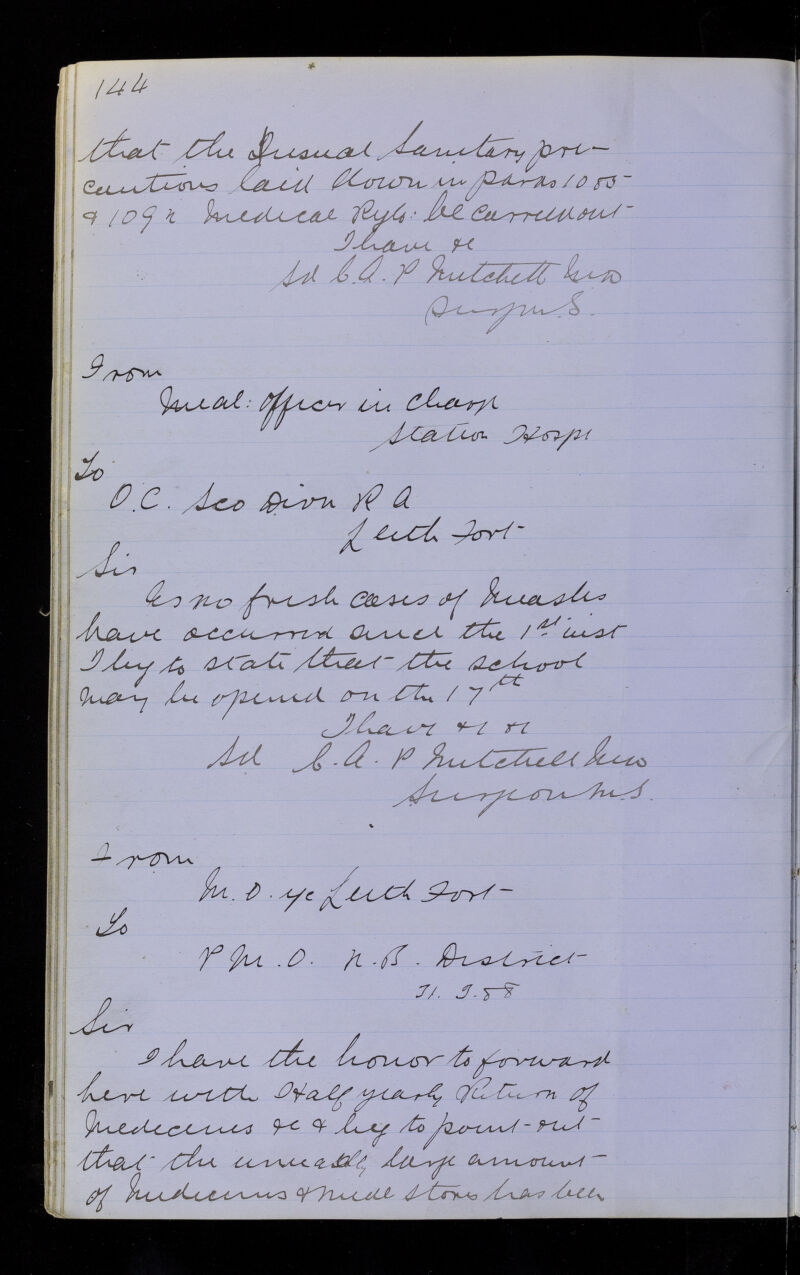 144
that the usual Sanitary pre-
cautions laid down in paras 1085
& 109 Medical Regls: be carried out
I have &c
Sd C. A. P Mitchell
Surgn M.S.
From
Medl: Officer in Charge
Station Hospl
To
O.C. Sco Divn R A
Leith Fort
Sir
As no fresh cases of Measles
have occurred since the 1st inst
I beg to state that the school
may be opened on the 17th
I have &c &c
Sd C. A. P Mitchell
Surgeon M.S.
From
M. O. i/c Leith Fort
To
P. M. O. N. B. District
88
Sir
I have the honor to forward
here with Half yearly Return of
Medecines &c & beg to point out
that the unusually large amount
of Medicines & Medl Stores has been